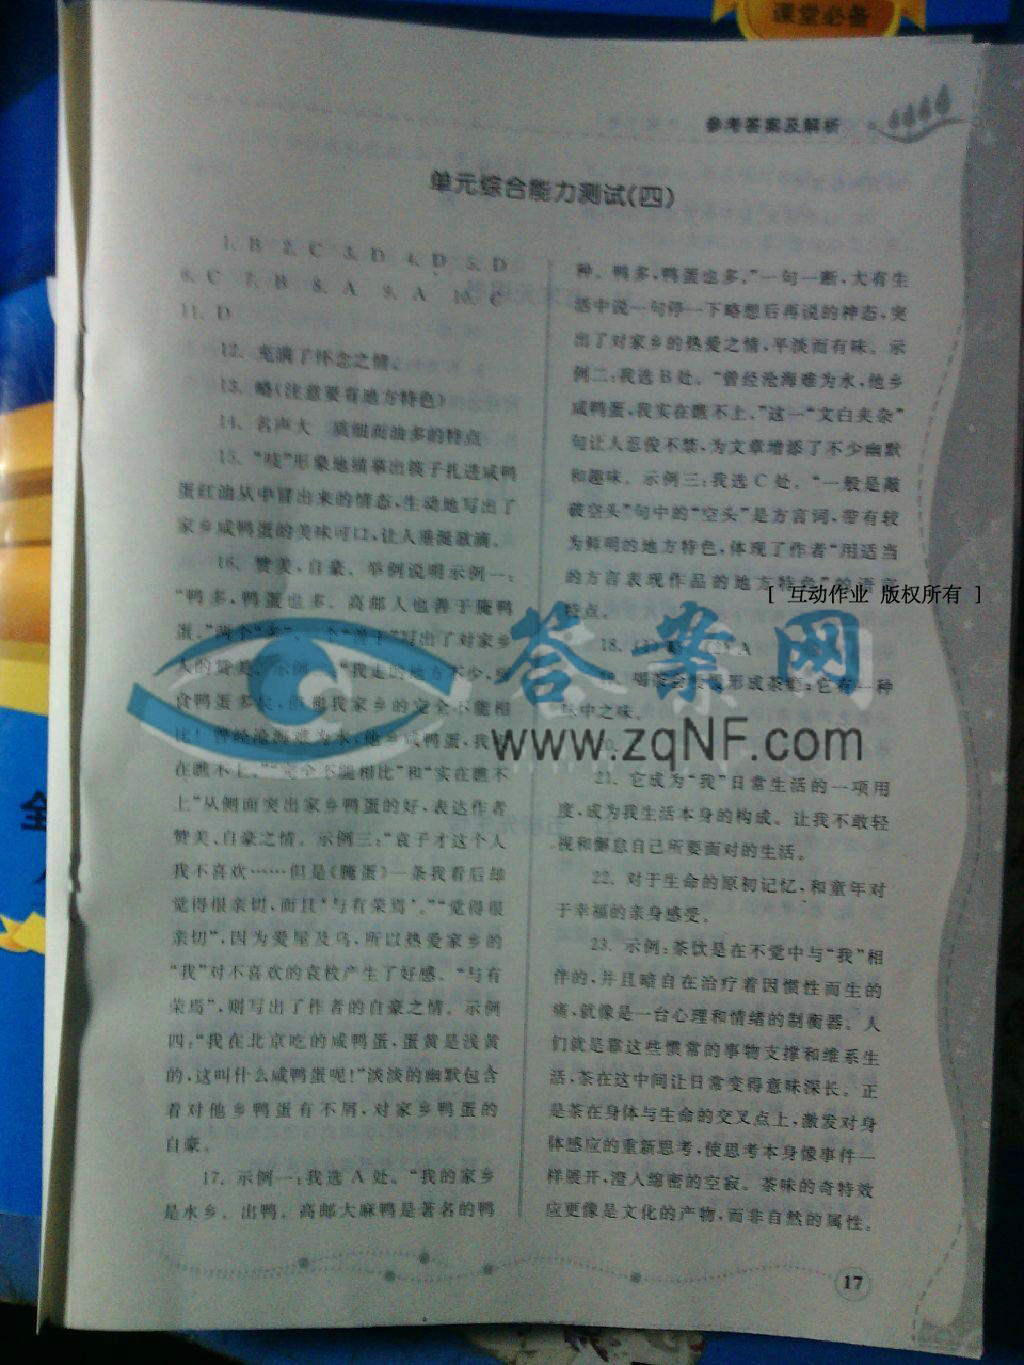 课堂必备
参考答案及解析
单元综合能力测试(四)
1. B 2. C 3. D 4. D 5. D
6. C 7. B 8. A 9. A 10. C
11. D
12. 充满了怀念之情。
13. 略(注意要有地方特色)
14. 名声大 质细而油多的特点
15. “吱”形象地描摹出筷子扎进咸鸭
蛋红油从中冒出来的情态,生动地写出了
家乡咸鸭蛋的美味可口,让人垂涎欲滴。
16. 赞美、自豪。举例说明示例一:
“鸭多,鸭蛋也多。高邮人也善于腌鸭
蛋。”两个“多”、一个“善于”写出了对家乡
人的赞美。示例二:“我走的地方不少,所
食鸭蛋多矣,但和我家乡的完全不能相
比！曾经沧海难为水,他乡咸鸭蛋,我实
在瞧不上。”“完全不能相比”和“实在瞧不
上”从侧面突出家乡鸭蛋的好,表达作者
赞美、自豪之情。示例三:“袁子才这个人
我不喜欢……但是《腌蛋》一条我看后却
觉得很亲切,而且‘与有荣焉’。”“觉得很
亲切”,因为爱屋及乌,所以热爱家乡的
“我”对不喜欢的袁枚产生了好感。“与有
荣焉”,则写出了作者的自豪之情。示例
四:“我在北京吃的咸鸭蛋,蛋黄是浅黄
的,这叫什么咸鸭蛋呢!”淡淡的幽默包含
着对他乡鸭蛋有不屑,对家乡鸭蛋的
自豪。
17. 示例一:我选 A 处。“我的家乡
是水乡。出鸭。高邮大麻鸭是著名的鸭
种。鸭多,鸭蛋也多。”一句一断,大有生
活中说一句停一下略想后再说的神态,突
出了对家乡的热爱之情,平淡而有味。示
例二:我选B处。“曾经沧海难为水,他乡
咸鸭蛋,我实在瞧不上。”这一“文白夹杂”
句让人忍俊不禁,为文章增添了不少幽默
和趣味。示例三:我选C处。“一般是敲
破空头”句中的“空头”是方言词,带有较
为鲜明的地方特色,体现了作者“用适当
的方言表现作品的地方特色”的语言
特点。
[ 互动作业 版权所有 ]
答案网
www.zqNF.com
18. A
19. 喝茶会慢慢形成茶瘾;它有一种
味中之味。
20.
21. 它成为“我”日常生活的一项用
度,成为我生活本身的构成。让我不敢轻
视和懈怠自己所要面对的生活。
22. 对于生命的原初记忆,和童年对
于幸福的亲身感受。
23. 示例:茶饮是在不觉中与“我”相
伴的,并且暗自在治疗着因惯性而生的
痛,就像是一台心理和情绪的制衡器。人
们就是靠这些惯常的事物支撑和维系生
活,茶在这中间让日常变得意味深长。正
是茶在身体与生命的交叉点上,激发对身
体感应的重新思考,使思考本身像事件一
样展开,澄人绵密的空寂。茶味的奇特效
应更像是文化的产物,而非自然的属性。
17